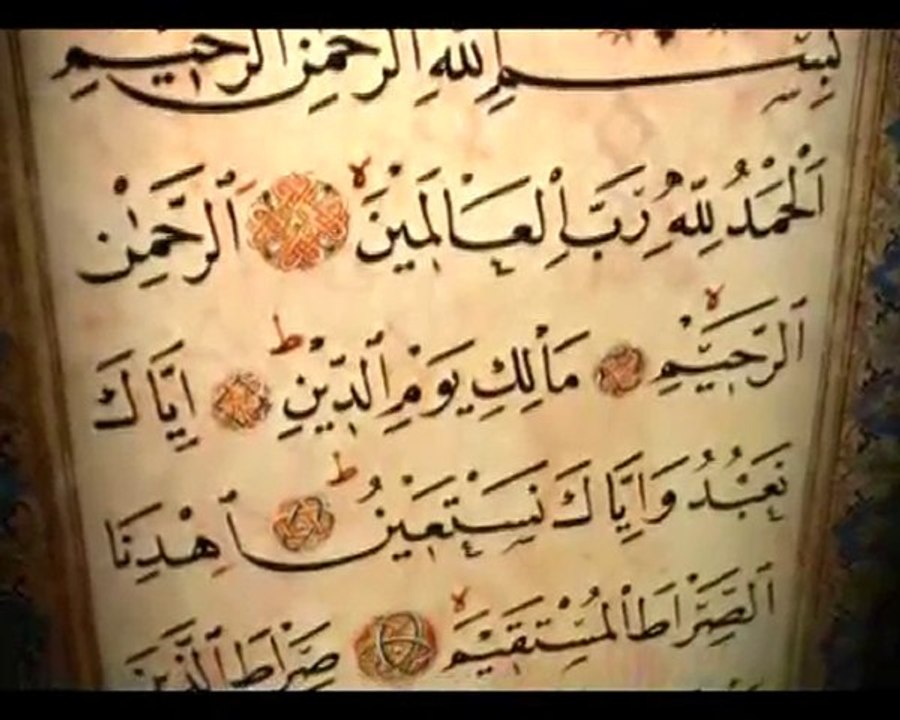 بِسْمِ اللهِ الرَّحْمٰنِ الرَّحِيمِ
اَلْحَمْدُ لِلّٰهِ رَبِّ الْعَالَمِينَ ۙ اَلرَّحْمٰنِ
الرَّحِيمِ ۙ مَالِكِ يَوْمِ الدِّينِ ۜ اِيَّاكَ
نَعْبُدُ وَاِيَّاكَ نَسْتَعِينُ ۜ اِهْدِنَا
الصِّرَاطَ الْمُسْتَقِيمَ ۙ صِرَاطَ الَّذِينَ